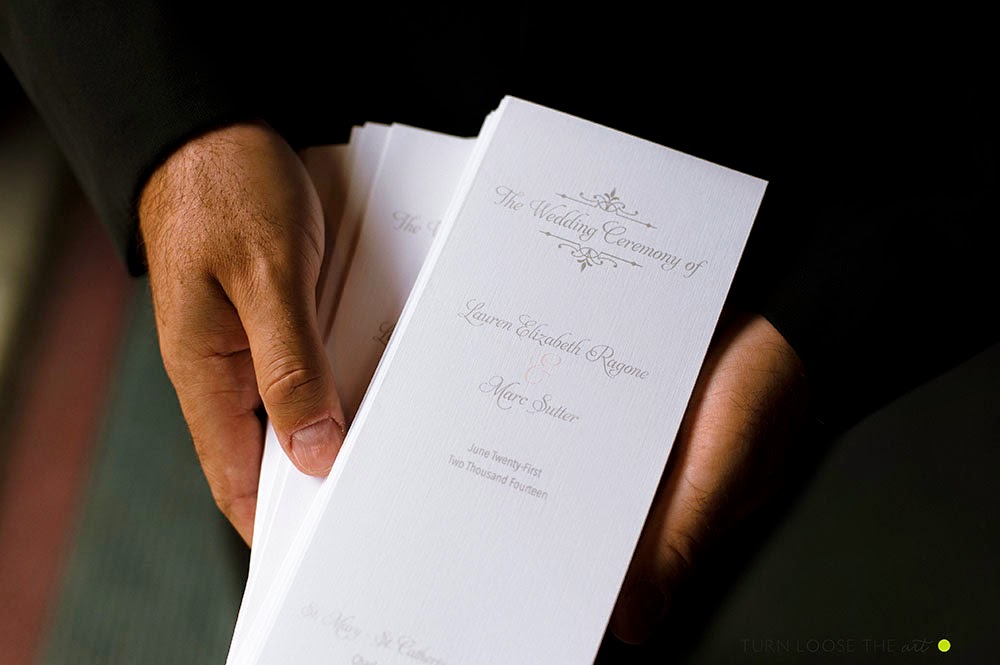 The Wedding Ceremony of
Lauren Elizabeth Ragone
&
Marc Sutter
June Twenty-First
Two Thousand Fourteen
St. Mary - St. Catherine
The
TURN LOOSE THE art